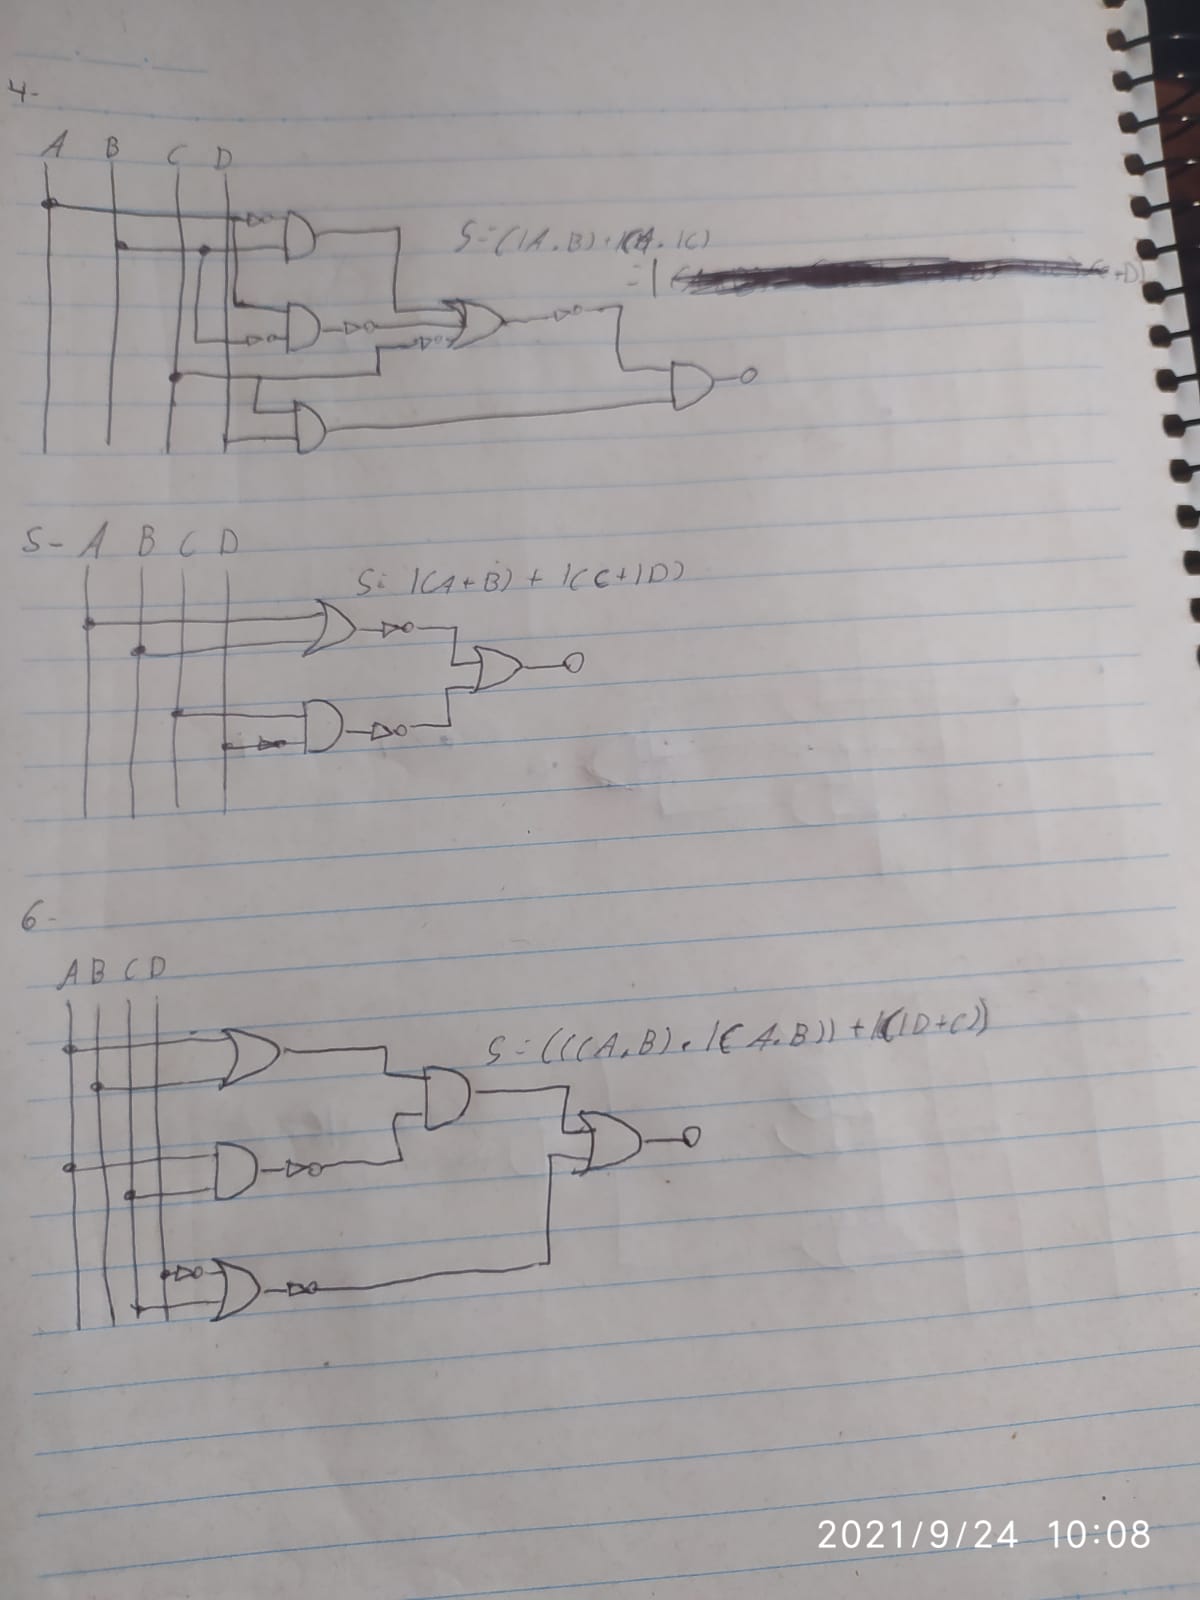 4-
A B C D
S=(/A.B)+/(A./C)
=/
+D)
5- A B C D
S= /(A+B) + /(C+/D)
6-
A B C D
S=(((A.B)./(A.B))+/(/D+C))
2021/9/24 10:08